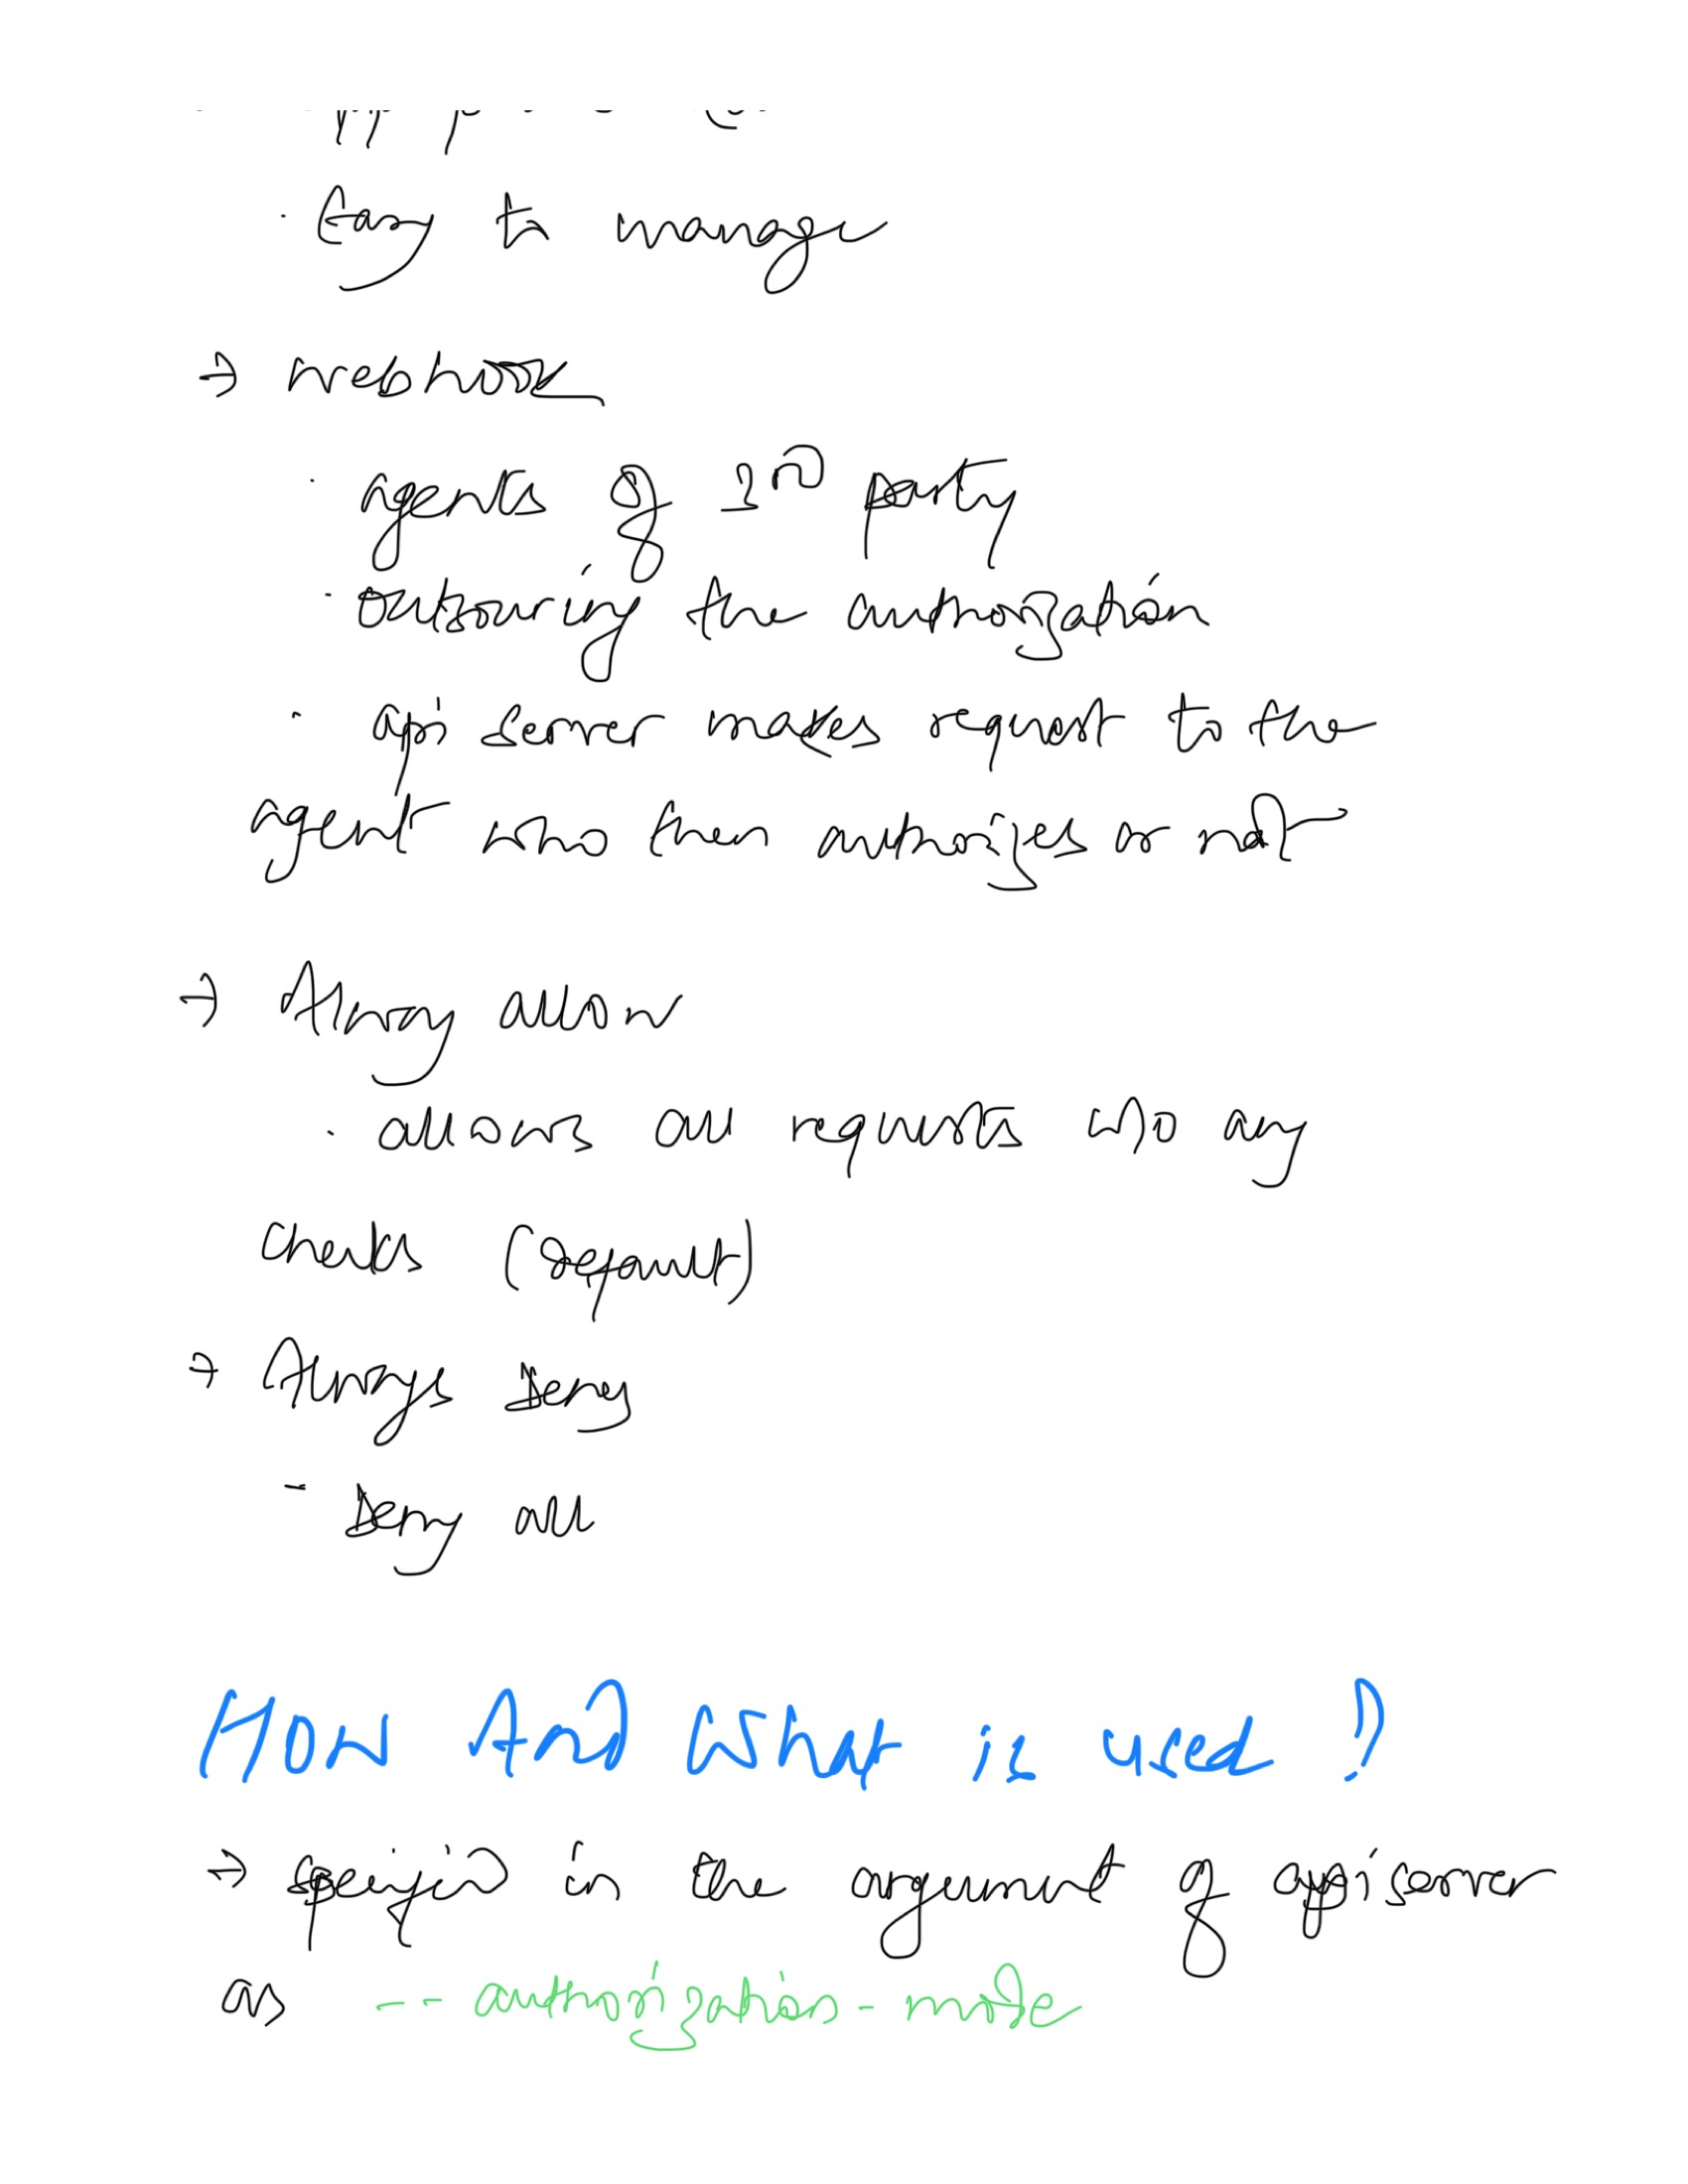 · Easy to manage
→ webhook
· agents of 3rd party
· outsourcing the authorization
· api server makes request to the
agent who then authorizes or not
→ Always allow
· allows all requests w/o any
checks (default)
→ Always Deny
- Deny all
How And What is used?
→ specified in the argument of apiserver
as --authorization-mode